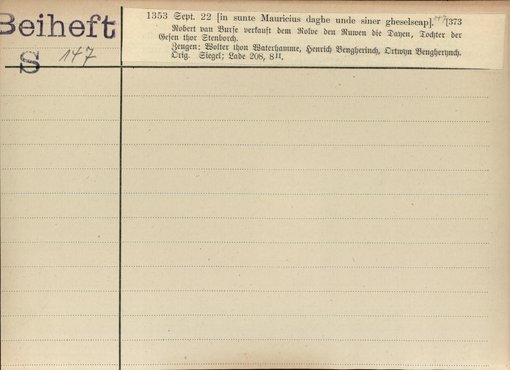 Beiheft
S 147
1353 Sept. 22 [in sunte Mauricius daghe unde siner gheselscap]. [373
Robert van Burse verkauft dem Rolve den Ruwen die Dayen, Tochter der
Gesen thor Stenborch.
Zeugen: Wolter thon Waterhamme, Henrich Bengherinch, Ortwyn Bengherynch.
Orig. Siegel; Lade 208, 8 11.